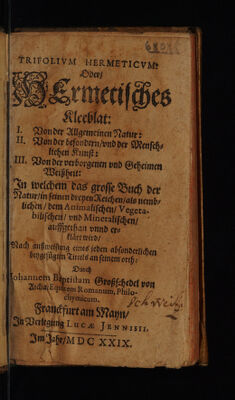 TRIFOLIVM HERMETICVM:
Oder/
HErmetisches
Kleeblat:
I. Von der Allgemeinen Natur:
II. Von der besondern/vnd der Mensch-
lichen Kunst:
III. Von der verborgenen vnd Geheimen
Weißheit:
In welchem das grosse Buch der
Natur/in seinen dreyen Reichen/als nemb-
lichen/ dem Animalischen/ Vegeta-
bilischen/ vnd Mineralischen/
auffgethan vnnd er-
klärt wird/
Nach außweisung eines jeden absonderlichen
beygefügten Tittels an seinem orth:
Durch
Johannem Baptistam Großschedel von
Aicha, Equitem Romanum, Philo-
chymicum.
Franckfurt am Mayn/
In Verlegung LUCÆ JENNISII.
Im Jahr/ MDC XXIX.